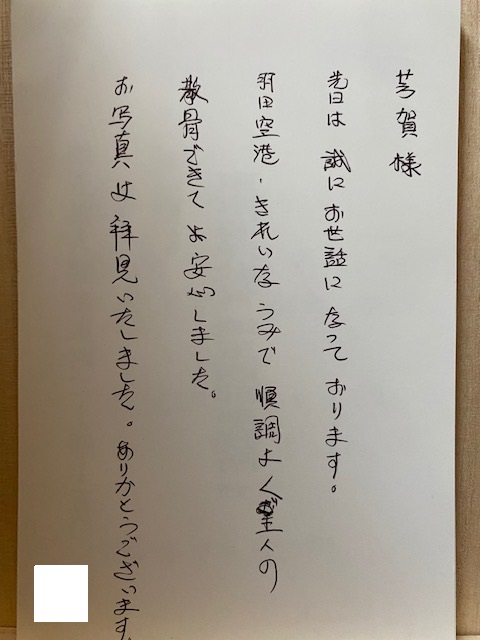 芳賀様
先日は 誠に お世話に なって おります。
羽田空港、きれいな うみで 順調よく 主人の
散骨できて 安心しました。
お写真は 拝見いたしました。ありがとうございます。